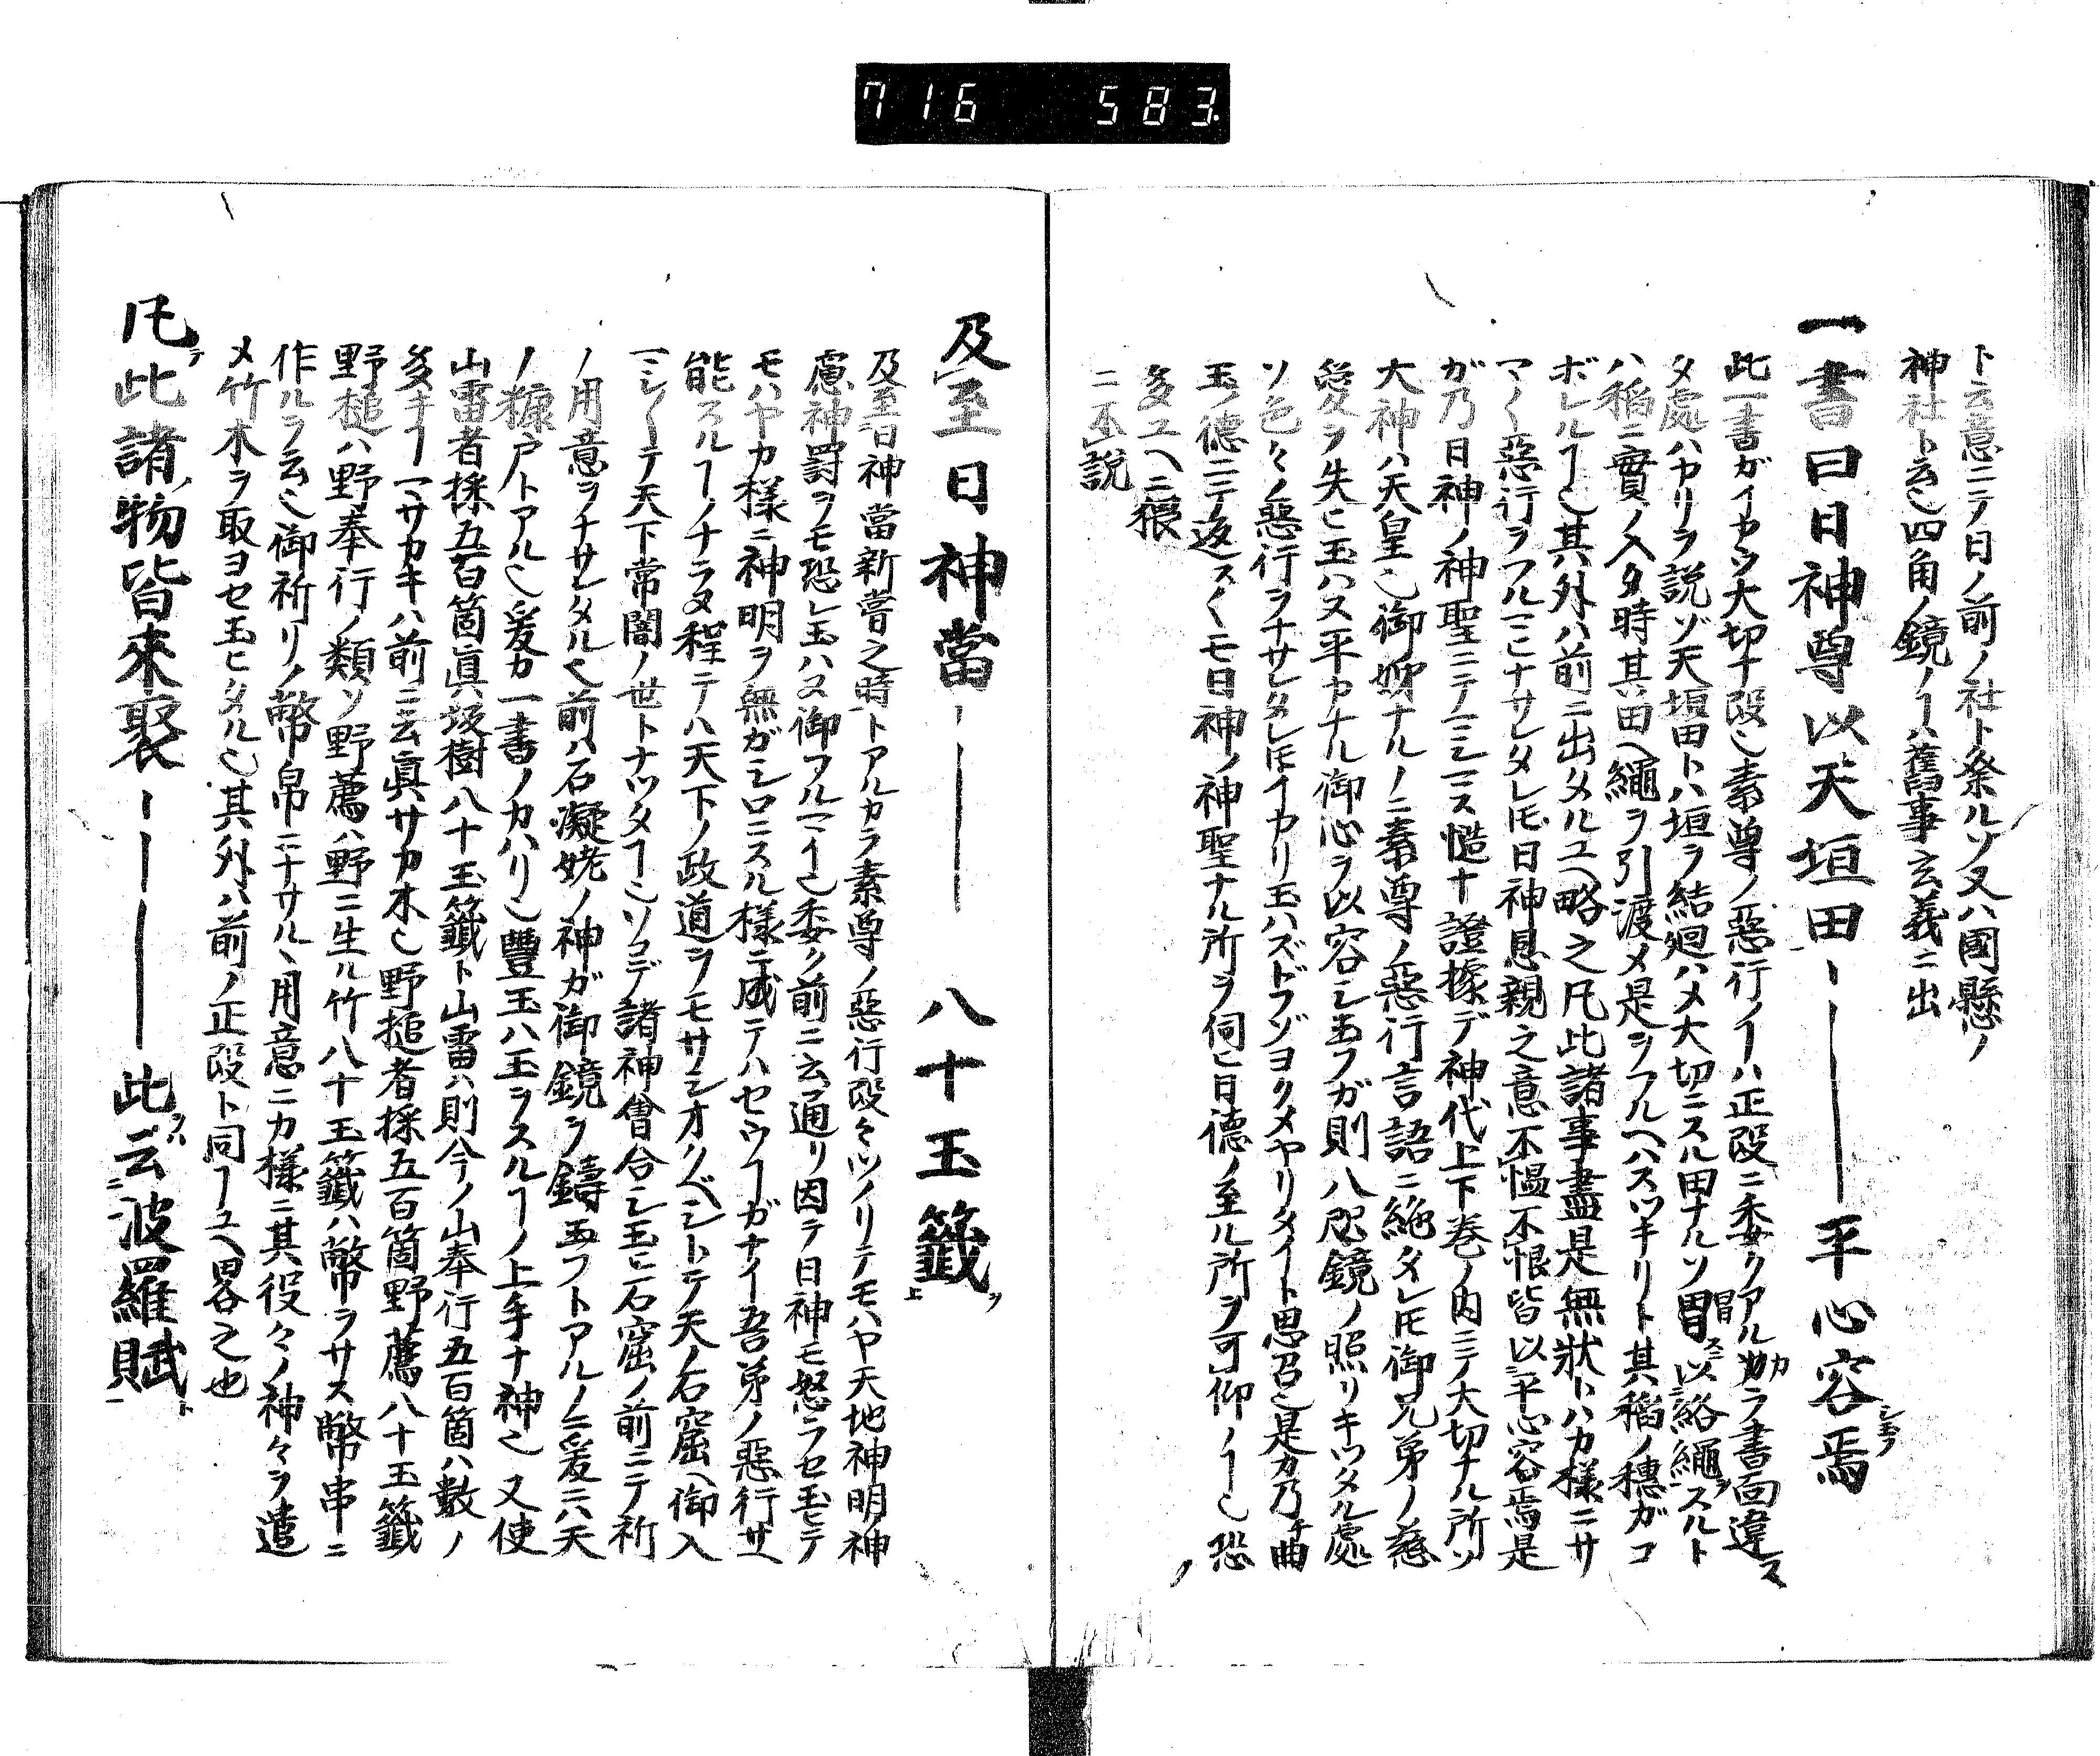 716 583.
ト云意ニテ日ノ前ノ社ト祭ルソ又ハ國懸ノ
神社ト云𪜈四角ノ鏡ノ〿ハ舊事玄義ニ出
一書曰日神尊以天垣田――――平心容焉
此一書ガイカウ大切ナ段也素尊ノ惡行ノ〿ハ正段ニ委クアル𫝂カラ書面違
タ處ハカリヲ説ゾ天垣田トハ垣ヲ結廻ハメ大切ニスル田ナルソ冒以絡繩スルト
ハ稲ニ實ノ入タ時其田ヘ繩ヲ引渡メ是ヲフルヘハスツキリト其稲ノ穗ガコ
ボレル〿也其外ハ前ニ出タルユヘ略之凡此諸事盡是無狀トハカ様ニサ
マ〱惡行ヲフルマニナサレタレ𪜈日神恩親之意不慍不恨皆以平心容焉是
ガ乃日神ノ神聖ニテマシマス慥ナ證據デ神代上下巻ノ内ニテ大切ナル所ソ
大神ハ天皇也御姉ナルノニ素尊ノ惡行言語ニ絶タレ𪜈御兄弟ノ慈
愛ヲ失ヒ玉ハヌ平カナル御心ヲ以容シ玉フガ則八咫鏡ノ照リキツタル處
ソ色々ノ惡行ヲナサレタレ𪜈イカリ玉ハズドフゾヨクメヤリタイト思召也是カ乃チ曲
玉ノ德ニテ返ス〱モ日神ノ神聖ナル所ヲ伺ヒ日德ノ至ル所ヲ可仰ノ〿也恐
多ユヘニ猥
ニ不説
及至日神當――――八十玉籤
及至日神當新嘗之時トアルカラ素尊ノ惡行段々ツノリテモハヤ天地神明神
慮神罰ヲモ恐レ玉ハヌ御フルマイ也委ク前ニ云通リ因テ日神モ怒ラセ玉ヒテ
モハヤカ様ニ神明ヲ無ガシロニスル様ニ成テハセウ〿ガナイ吾弟ノ惡行サヘ
能スル〿ノナラヌ程ニテハ天下ノ政道ヲモサシオクベシトテ天ノ石窟ヘ御入
マシ〱テ天下常闇ノ世トナツタ〿也ソコデ諸神會合シ玉ヒ石窟ノ前ニテ祈
ノ用意ヲナサレタル也前ハ石凝姥ノ神ガ御鏡ヲ鑄玉フトアルノニ爰ニハ天
ノ糠戸トアル也爰カ一書ノカハリ也豐玉ハ玉ヲスル〿ノ上手ナ神也又使
山雷者採五百箇眞坂樹八十玉籤ト山雷ハ則今ノ山奉行五百箇ハ數ノ
多キ〿マサカキハ前ニ云眞サカ木也野槌者採五百箇野薦八十玉籤
野槌ハ野奉行ノ類ソ野薦ハ野ニ生ル竹八十玉籤ハ幣ヲサス幣串ニ
作ルヲ云也御祈リノ幣帛ニナサルヽ用意ニカ様ニ其役々ノ神々ヲ遣
メ竹木ヲ取ヨセ玉ヒタル也其外ハ前ノ正段ト同〿ユヘ畧之也
凡此諸物皆來聚――――此云波羅賦